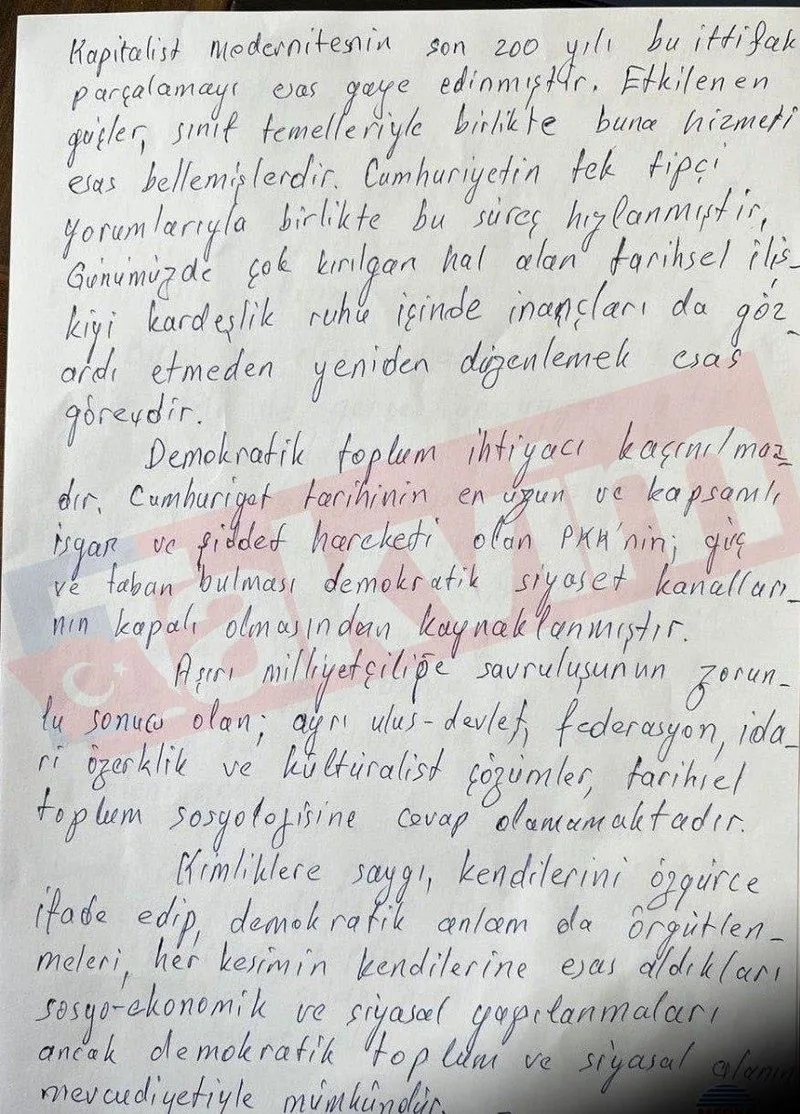 Kapitalist modernitenin son 200 yılı bu ittifak
parçalamayı esas gaye edinmiştir. Etkilenen
güçler, sınıf temelleriyle birlikte buna hizmeti
esas bellemişlerdir. Cumhuriyetin tek tipçi
yorumlarıyla birlikte bu süreç hızlanmıştır,
Günümüzde çok kırılgan hal alan tarihsel iliş-
kiyi kardeşlik ruhu içinde inançları da göz
ardı etmeden yeniden düzenlemek esas
görevdir.
Demokratik toplum ihtiyacı kaçınılmaz-
dır. Cumhuriyet tarihinin en uzun ve kapsamlı
isyan ve şiddet hareketi olan PKK'nin; güç
ve taban bulması demokratik siyaset kanalları-
nın kapalı olmasından kaynaklanmıştır.
Aşırı milliyetçiliğe savruluşunun zorun-
lu sonucu olan; ayrı ulus-devlet, federasyon, ida-
ri özerklik ve kültüralist çözümler, tarihsel
toplum sosyolojisine cevap olamamaktadır.
Kimliklere saygı, kendilerini özgürce
ifade edip, demokratik anlam da örgütlen-
meleri, her kesimin kendilerine esas aldıkları
sosyo-ekonomik ve siyasal yapılanmaları
ancak demokratik toplum ve siyasal alanın
mevcudiyetiyle mümkündür.
takvim